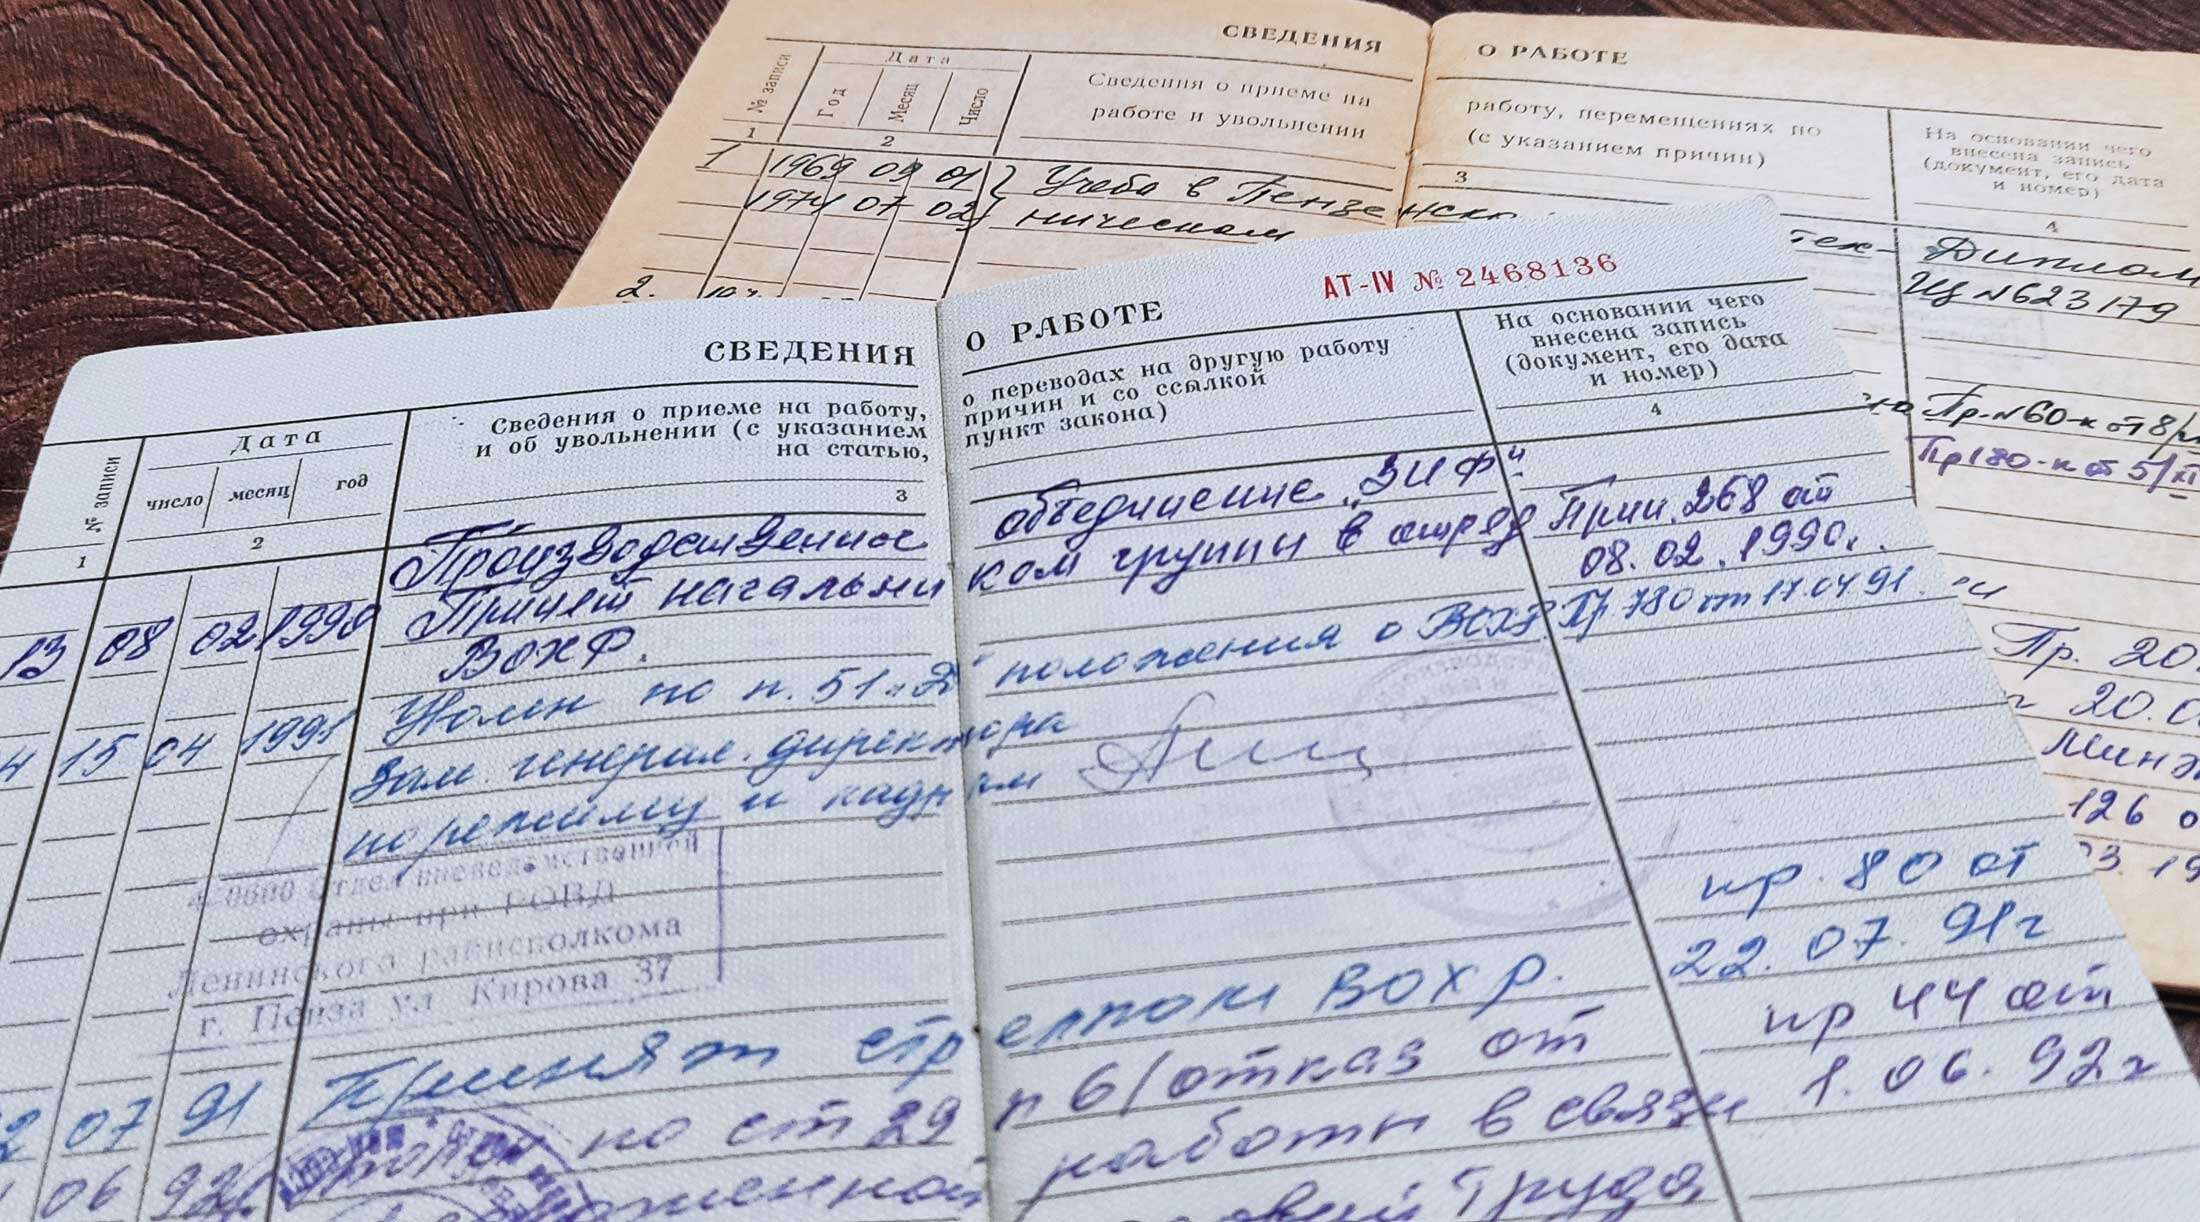 СВЕДЕНИЯ О РАБОТЕ
№ записи
Дата
Год Месяц Число
Сведения о приеме на работу, перемещениях по
работе и увольнении (с указанием причин)
На основании чего
внесена запись
(документ, его дата
и номер)
1 2 3 4
1 1969 09 01 Учеба в Пензенском
1974 07 02 ническом
тех- Диплом
№ 623179
2.
Пр-№60-к от 8/
Пр180-к от 5/XI
Пр. 20
20.0
126 о
3.19
СВЕДЕНИЯ О РАБОТЕ
АТ-IV № 2468136
№ записи
Дата
число месяц год
Сведения о приеме на работу, о переводах на другую работу
и об увольнении (с указанием причин и со ссылкой
на статью, пункт закона)
На основании чего
внесена запись
(документ, его дата
и номер)
1 2 3 4
Производственное объединение „ЗИФ“
13 08 02 1990 Принят начальником группы в отряд Прик. 268 от
ВОХР. 08.02.1990г.
15 04 1991 Уволен по п. 51 „Д“ положения о ВОХР. Пр. 780 от 17.04.91
Зам. генерал. директора
по режиму и кадрам
Отдел вневедомственной
охраны при РОВД
Ленинского райисполкома
г. Пенза ул Кирова 37
2 07 91 Принят стрелком ВОХР. пр. 80 от
22.07.91г
06 92 по ст 29 п 6/отказ от пр 44 от
работы в связи 1.06.92г
труда